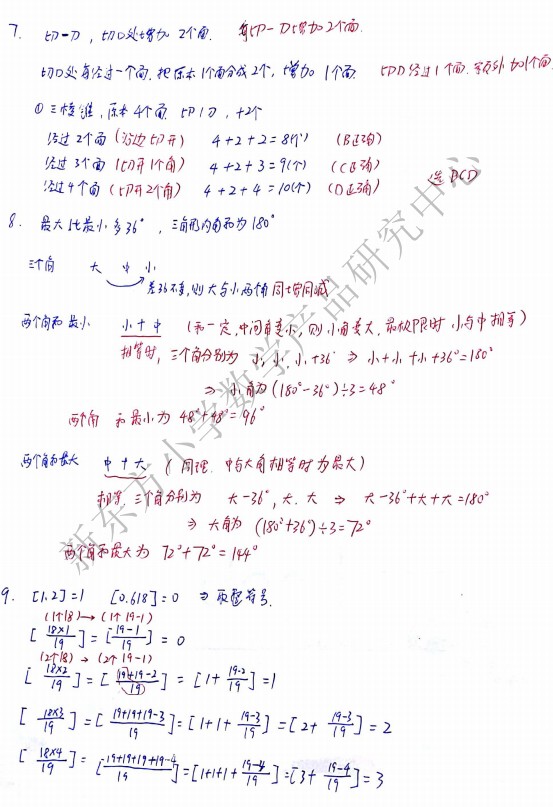 7. 切一刀，切口处增加 2个面. 每切一刀增加2个面.
切口处每经过一个面，把原本1个面分成2个，增加1个面. 切口经过1个面，等额外加1个面.
① 三棱锥，原本4个面，切1刀，+2个
经过2个面（沿边切开） 4+2+2=8(个) （B正确）
经过3个面（切开1个角） 4+2+3=9(个) （C正确）
经过4个面（切开2个角） 4+2+4=10(个) （D正确） 选BCD
8. 最大比最小多36°，三角形内角和为180°
三个角 大 中 小
差36不变，则大与小两个角同增同减
两个角和最小 小+中 （和一定，中间角变小，则小角变大，最极限时 小与中相等）
相等时，三个角分别为 小，小，小+36° ⇒ 小+小+小+36°=180°
⇒ 小角为(180°-36°)÷3=48°
两个角 和最小为 48°+48°=96°
两个角和最大 中+大 （同理，中与大角相等时为最大）
相等，三个角分别为 大-36°，大，大 ⇒ 大-36°+大+大=180°
⇒ 大角为 (180°+36°)÷3=72°
两个角和最大为 72°+72°=144°
9. [1.2]=1 [0.618]=0 ⇒ 取整符号.
(1个18)→(1个19-1)
[18×1/19]=[19-1/19]=0
(2个18)→(2个19-1)
[18×2/19]=[19+19-2/19]=[1+19-2/19]=1
[18×3/19]=[19+19+19-3/19]=[1+1+19-3/19]=[2+19-3/19]=2
[18×4/19]=[19+19+19+19-4/19]=[1+1+1+19-4/19]=[3+19-4/19]=3
新东方小学数学产品研究中心